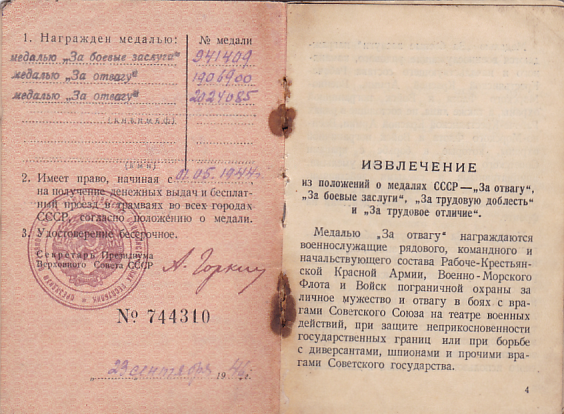 1. Награжден медалью: № медали
медалью „За боевые заслуги" 941409
медалью „За отвагу" 1906900
медалью „За отвагу" 2024085
2. Имеет право, начиная с 01.05.1944г.
на получение денежных выдач и бесплат-
ный проезд в трамваях во всех городах
СССР, согласно положению о медали.
3. Удостоверение бессрочное.
Секретарь Президиума
Верховного Совета СССР А. Горкин
№ 744310
„23 сентября 1946г.
ИЗВЛЕЧЕНИЕ
из положений о медалях СССР—„За отвагу",
„За боевые заслуги", „За трудовую доблесть"
и „За трудовое отличие".
Медалью „За отвагу" награждаются
военнослужащие рядового, командного и
начальствующего состава Рабоче-Крестьян-
ской Красной Армии, Военно-Морского
Флота и Войск пограничной охраны за
личное мужество и отвагу в боях с вра-
гами Советского Союза на театре военных
действий, при защите неприкосновенности
государственных границ или при борьбе
с диверсантами, шпионами и прочими вра-
гами Советского государства.
4